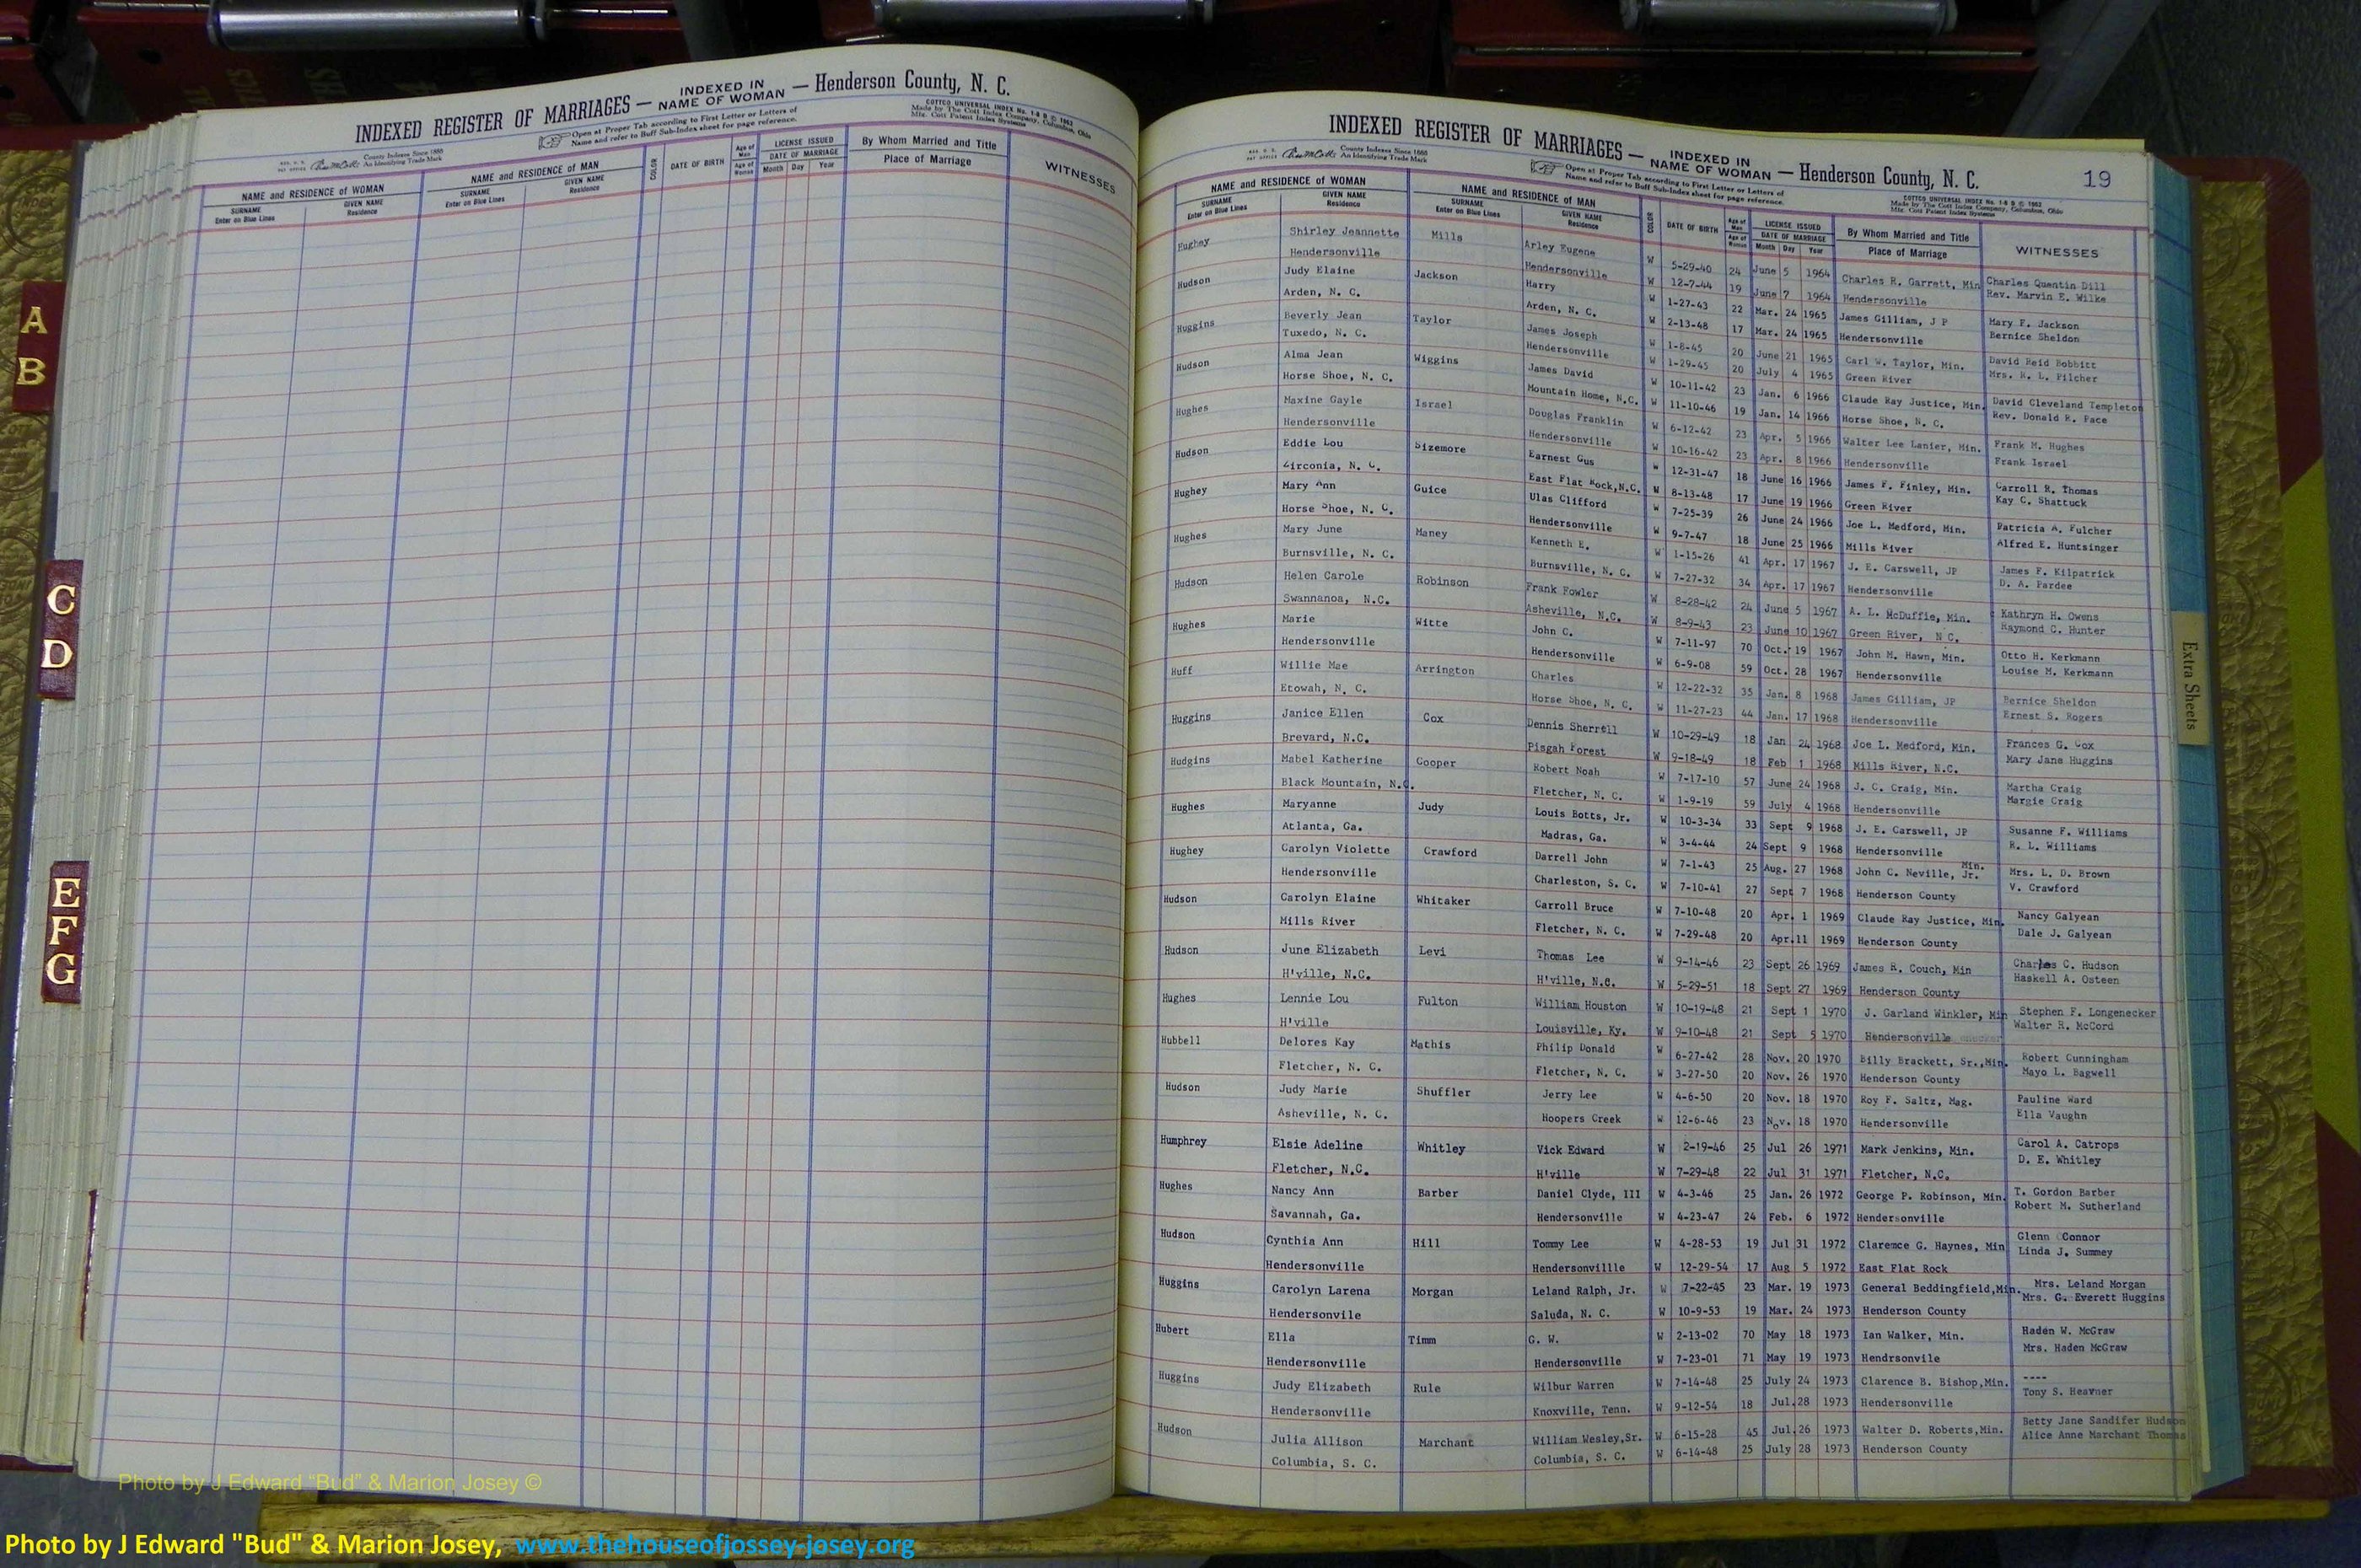 INDEXED REGISTER OF MARRIAGES — INDEXED IN NAME OF WOMAN — Henderson County, N. C.
Open at Proper Tab according to First Letter or Letters of Name and refer to Buff Sub-Index sheet for page reference.
COTTCO UNIVERSAL INDEX No. 1-8 B © 1952
Made by The Cott Index Company, Columbus, Ohio
Mfg. Cott Patent Index Systems
County Indexes Since 1888
An Identifying Trade Mark
NAME and RESIDENCE OF WOMAN
SURNAME
Enter on Blue Lines
GIVEN NAME
Residence
NAME and RESIDENCE OF MAN
SURNAME
Enter on Blue Lines
GIVEN NAME
Residence
COLOR
DATE OF BIRTH
Age of Man
Age of Woman
LICENSE ISSUED
DATE OF MARRIAGE
Month Day Year
By Whom Married and Title
Place of Marriage
WITNESSES
A
B
C
D
E
F
G
INDEXED REGISTER OF MARRIAGES — INDEXED IN NAME OF WOMAN — Henderson County, N. C. 19
Open at Proper Tab according to First Letter or Letters of Name and refer to Buff Sub-Index sheet for page reference.
COTTCO UNIVERSAL INDEX No. 1-8 B © 1952
Made by The Cott Index Company, Columbus, Ohio
Mfg. Cott Patent Index Systems
County Indexes Since 1888
An Identifying Trade Mark
NAME and RESIDENCE OF WOMAN
SURNAME
Enter on Blue Lines
GIVEN NAME
Residence
NAME and RESIDENCE OF MAN
SURNAME
Enter on Blue Lines
GIVEN NAME
Residence
COLOR
DATE OF BIRTH
Age of Man
Age of Woman
LICENSE ISSUED
DATE OF MARRIAGE
Month Day Year
By Whom Married and Title
Place of Marriage
WITNESSES
Hughey Shirley Jeannette Mills Arley Eugene W 5-29-40 24 June 5 1964 Charles R. Garrett, Min Charles Quentin Dill
Hendersonville Hendersonville W 12-7-44 19 June 7 1964 Hendersonville Rev. Marvin E. Wilke
Hudson Judy Elaine Jackson Harry W 1-27-43 22 Mar. 24 1965 James Gilliam, J P Mary F. Jackson
Arden, N. C. Arden, N. C. W 2-13-48 17 Mar. 24 1965 Hendersonville Bernice Sheldon
Huggins Beverly Jean Taylor James Joseph W 1-8-45 20 June 21 1965 Carl W. Taylor, Min. David Reid Bobbitt
Tuxedo, N. C. Hendersonville W 1-29-45 20 July 4 1965 Green River Mrs. R. L. Pilcher
Hudson Alma Jean Wiggins James David W 10-11-42 23 Jan. 6 1966 Claude Ray Justice, Min. David Cleveland Templeton
Horse Shoe, N. C. Mountain Home, N.C. W 11-10-46 19 Jan. 14 1966 Horse Shoe, N. C. Rev. Donald R. Pace
Hughes Maxine Gayle Israel Douglas Franklin W 6-12-42 23 Apr. 5 1966 Walter Lee Lanier, Min. Frank M. Hughes
Hendersonville Hendersonville W 10-16-42 23 Apr. 8 1966 Hendersonville Frank Israel
Hudson Eddie Lou Sizemore Earnest Gus W 12-31-47 18 June 16 1966 James F. Finley, Min. Carroll R. Thomas
Zirconia, N. C. East Flat Rock,N.C. W 8-13-48 17 June 19 1966 Green River Kay C. Shattuck
Hughey Mary Ann Guice Ulas Clifford W 7-25-39 26 June 24 1966 Joe L. Medford, Min. Patricia A. Fulcher
Horse Shoe, N. C. Hendersonville W 9-7-47 18 June 25 1966 Mills River Alfred E. Huntsinger
Hughes Mary June Maney Kenneth E. W 1-15-26 41 Apr. 17 1967 J. E. Carswell, JP James F. Kilpatrick
Burnsville, N. C. Burnsville, N. C. W 7-27-32 34 Apr. 17 1967 Hendersonville D. A. Pardee
Hudson Helen Carole Robinson Frank Fowler W 8-28-42 24 June 5 1967 A. L. McDuffie, Min. Kathryn H. Owens
Swannanoa, N.C. Asheville, N.C. W 8-9-43 23 June 10 1967 Green River, N C. Raymond C. Hunter
Hughes Marie Witte John C. W 7-11-97 70 Oct. 19 1967 John M. Hawn, Min. Otto H. Kerkmann
Hendersonville Hendersonville W 6-9-08 59 Oct. 28 1967 Hendersonville Louise M. Kerkmann
Huff Willie Mae Arrington Charles W 12-22-32 35 Jan. 8 1968 James Gilliam, JP Bernice Sheldon
Etowah, N. C. Horse Shoe, N. C. W 11-27-23 44 Jan. 17 1968 Hendersonville Ernest S. Rogers
Huggins Janice Ellen Cox Dennis Sherrill W 10-29-49 18 Jan 24 1968 Joe L. Medford, Min. Frances G. Cox
Brevard, N.C. Pisgah Forest W 9-18-49 18 Feb 1 1968 Mills River, N.C. Mary Jane Huggins
Hudgins Mabel Katherine Cooper Robert Noah W 7-17-10 57 June 24 1968 J. C. Craig, Min. Martha Craig
Black Mountain, N.C. Fletcher, N. C. W 1-9-19 59 July 4 1968 Hendersonville Margie Craig
Hughes Maryanne Judy Louis Botts, Jr. W 10-3-34 33 Sept 9 1968 J. E. Carswell, JP Susanne F. Williams
Atlanta, Ga. Madras, Ga. W 3-4-44 24 Sept 9 1968 Hendersonville R. L. Williams
Hughey Carolyn Violette Crawford Darrell John W 7-1-43 25 Aug. 27 1968 John C. Neville, Jr. Min. Mrs. L. D. Brown
Hendersonville Charleston, S. C. W 7-10-41 27 Sept 7 1968 Henderson County V. Crawford
Hudson Carolyn Elaine Whitaker Carroll Bruce W 7-10-48 20 Apr. 1 1969 Claude Ray Justice, Min. Nancy Galyean
Mills River Fletcher, N. C. W 7-29-48 20 Apr.11 1969 Henderson County Dale J. Galyean
Hudson June Elizabeth Levi Thomas Lee W 9-14-46 23 Sept 26 1969 James R. Couch, Min Charles C. Hudson
H'ville, N.C. H'ville, N.C. W 5-29-51 18 Sept 27 1969 Henderson County Haskell A. Osteen
Hughes Lennie Lou Fulton William Houston W 10-19-48 21 Sept 1 1970 J. Garland Winkler, Min Stephen F. Longenecker
H'ville Louisville, Ky. W 9-10-48 21 Sept 5 1970 Hendersonville Walter R. McCord
Hubbell Delores Kay Mathis Philip Donald W 6-27-42 28 Nov. 20 1970 Billy Brackett, Sr.,Min. Robert Cunningham
Fletcher, N. C. Fletcher, N. C. W 3-27-50 20 Nov. 26 1970 Henderson County Mayo L. Bagwell
Hudson Judy Marie Shuffler Jerry Lee W 4-6-50 20 Nov. 18 1970 Roy F. Saltz, Mag. Pauline Ward
Asheville, N. C. Hoopers Creek W 12-6-46 23 Nov. 18 1970 Hendersonville Ella Vaughn
Humphrey Elsie Adeline Whitley Vick Edward W 2-19-46 25 Jul 26 1971 Mark Jenkins, Min. Carol A. Catrops
Fletcher, N.C. H'ville W 7-29-48 22 Jul 31 1971 Fletcher, N.C. D. E. Whitley
Hughes Nancy Ann Barber Daniel Clyde, III W 4-3-46 25 Jan. 26 1972 George P. Robinson, Min. T. Gordon Barber
Savannah, Ga. Hendersonville W 4-23-47 24 Feb. 6 1972 Hendersonville Robert M. Sutherland
Hudson Cynthia Ann Hill Tommy Lee W 4-28-53 19 Jul 31 1972 Clarence G. Haynes, Min Glenn Connor
Hendersonville Hendersonvillle W 12-29-54 17 Aug 5 1972 East Flat Rock Linda J. Summey
Huggins Carolyn Larena Morgan Leland Ralph, Jr. W 7-22-45 23 Mar. 19 1973 General Beddingfield,Min. Mrs. Leland Morgan
Hendersonvile Saluda, N. C. W 10-9-53 19 Mar. 24 1973 Henderson County Mrs. G. Everett Huggins
Hubert Ella Timm G. W. W 2-13-02 70 May 18 1973 Ian Walker, Min. Haden W. McGraw
Hendersonville Hendersonville W 7-23-01 71 May 19 1973 Hendrsonvile Mrs. Haden McGraw
Huggins Judy Elizabeth Rule Wilbur Warren W 7-14-48 25 July 24 1973 Clarence B. Bishop,Min. ----
Hendersonville Knoxville, Tenn. W 9-12-54 18 Jul.28 1973 Hendersonville Tony S. Heavner
Hudson Julia Allison Marchant William Wesley,Sr. W 6-15-28 45 Jul.26 1973 Walter D. Roberts,Min. Betty Jane Sandifer Hudson
Columbia, S. C. Columbia, S. C. W 6-14-48 25 July 28 1973 Henderson County Alice Anne Marchant Thomas
Extra Sheets
Photo by J Edward “Bud” & Marion Josey ©
Photo by J Edward "Bud" & Marion Josey, www.thehouseofjossey-josey.org